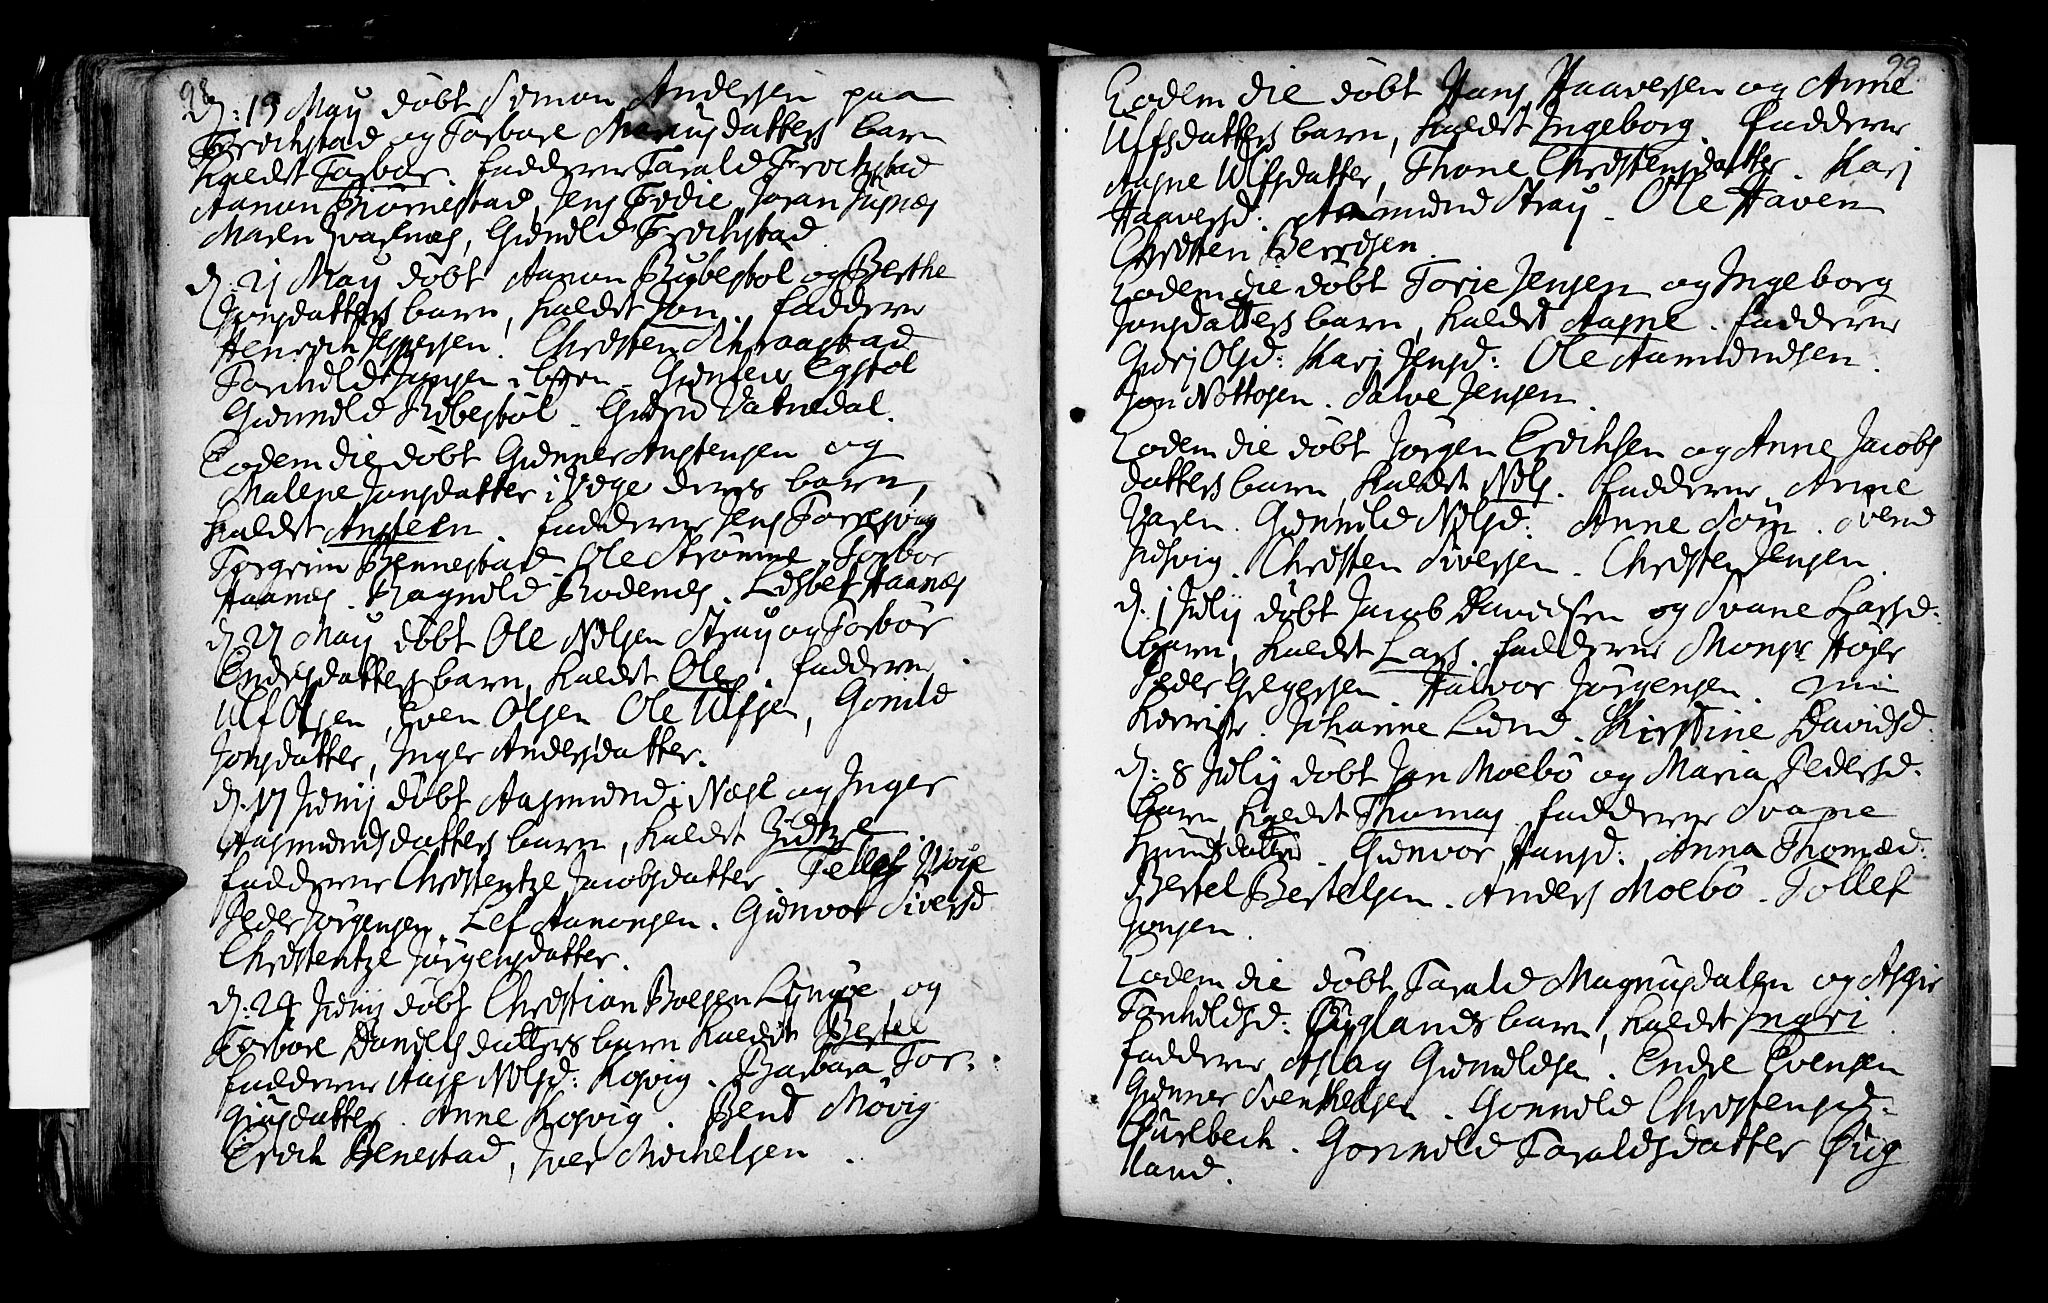 98.
d: 19 May döbt Simon Andersen paa
Frochstad og Torbore Mariusdatters barn
kaldet Torbor. fadderne Tarald Frochstad
Aanon Biörnestad, Jens Fidie, Joran
Maren Qvarenes, Gunild Frochstad
d: 21 May döbt Aanon Rybestöl og Berthe
Jonsdatters barn, kaldet Jon. fadderne
Henrich Jespersen. Christen Schraastad
Tarkild Jensen i byen. Gunleu Egstöl
Gunnild Ribestöl. Gudru Vatnedal.
Eodem die döbt Gunner Anstensen og
Malene Jonsdatter i Vege deres barn,
kaldet Ansteen. fadderne Jens Torresvig
Torgrim Bennestad. Ole Strömme. Torbor
Haanes. Ragnild Rodenes. Lisbet Haanes
d: 27 May döbt Ole Nilsen Stray og Torbör
Endresdatters barn, kaldet Ole. fadderne
Ulf Olsen, Even Olsen Ole Ulfsen, Gonild
Jonsdatter, Inger Andersdatter.
d. 17 Junij döbt Aasmund i Nese og Inger
Aasmundsdatters barn, kaldet Zidtze
fadderne Christentze Jacobsdatter. Tellef Voje
Peder Jörgensen. Lef Aanonsen. Gunvor Siversd
Christentze Jörgensdatter.
d: 24 Junij döbt Christian Boesen Lyngöe og
Torbore Danielsdatters barn kaldet Bertel
fadderne Aase Nilsd: Kosvig. Barbara Tor-
giusdatter. Anne Kosvig. Bend Mövig
Erich Benestad, Iver Michelsen.
99.
Eodem die döbt Hans Haaversen og Anne
Ulfsdatters barn, kaldet Ingeborg. fadderne
Aasne Ulfsdatter, Thone Christensdatter. Karj
Haaversd: Aamund Stray. Ole Haven
Christen Berresen.
Eodem die döbt Torie Jensen og Ingeborg
Jonsdatters barn, kaldet Aasne. fadderne
Gurj Olsd: Karj Jensd: Ole Aamundsen.
Jon Nottosen. Salve Jensen.
Eodem die döbt Jörgen Erichsen og Anne Jacobs
datters barn kaldet Nils. fadderne Anne
Varen. Gunnild Nilsd: Anne Söm. Svend
Justvig. Christen Siversen. Christen Jensen.
d. 1 Julij döbt Jacob Davidsen og Svane Larsd:
barn, kaldet Lars. fadderne Monsr Höjer
Peder Gregersen. Halvor Jörgensen. min
Kierriste. Johanne Lund. Kirstine Davidsd.
d: 8 Julij döbt Jan Moebö og Maria Pedersd.
barn kaldet Thomas. fadderne Svane
Gunvor Hansd: Anna Thomæd:
Bertel Bertelsen. Anders Moebö. Tollef
Jonsen.
Eodem die döbt Tarald Magnusdalen og Assir
Tarkildsd: Öuglands barn, kaldet Ingri.
fadderne Aslag Gunnildsen. Endre Evensen
Gunner Svenkedsen. Gonnild Christensd:
Ourebech. Gonnild Taraldsdatter Öug
land.